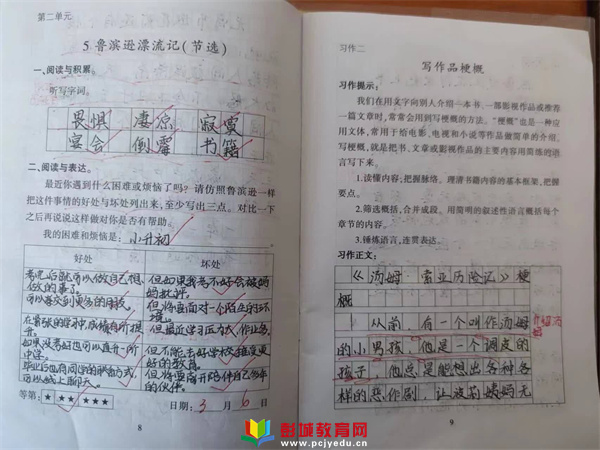 第二单元
5 鲁滨逊漂流记(节选)
一、阅读与积累。
听写字词。
畏惧 凄凉 寂寞
宴会 倒霉 书籍
二、阅读与表达。
最近你遇到什么困难或烦恼了吗?请仿照鲁滨逊一样
把这件事情的好处与坏处列出来,至少写出三点。对比一下
之后再说说这样做对你是否有帮助。
我的困难和烦恼是:小升初
好处 坏处
考完后就可以做自己想 但如果我考不好会被妈
做的事了。 妈批评。
可以结交到更多的朋友。 但将面对一个陌生的环
境。
在紧张的学习中,成绩有所提 但接近学习压力 作业多。
升。
如果没考好也可以直升 所 但不能去好学校接受更
中学。 好的教育。
毕业后也有同学的联系方式 但将要离开陪伴自己多年
可以线上聊天。 的伙伴。
等第: ★★★★★ 日期: 3 月 6 日
8
习作二
写作品梗概
习作提示:
我们在用文字向别人介绍一本书、一部影视作品或推荐
一篇文章时,常常会用到写梗概的方法。“梗概”也是一种应
用文体,常用于给电影、电视和小说等作品做简单的介绍。
写梗概,就是把书、文章或影视作品的主要内容用简练的语
言写下来。
1.读懂内容,把握脉络。理清书籍内容的基本框架,把握
要点。
2.筛选概括,合并成段。用简明的叙述性语言概括每个
章节的内容。
3.锤炼语言,连贯表达。
习作正文:
《汤姆·索亚历险记》梗
概
从前,有一个叫作汤姆
的小男孩,他是一个调皮的
孩子,他总是能想出各种各
样的恶作剧,让波莉姨妈无
9
彭城教育网
www.pcjyedu.cn